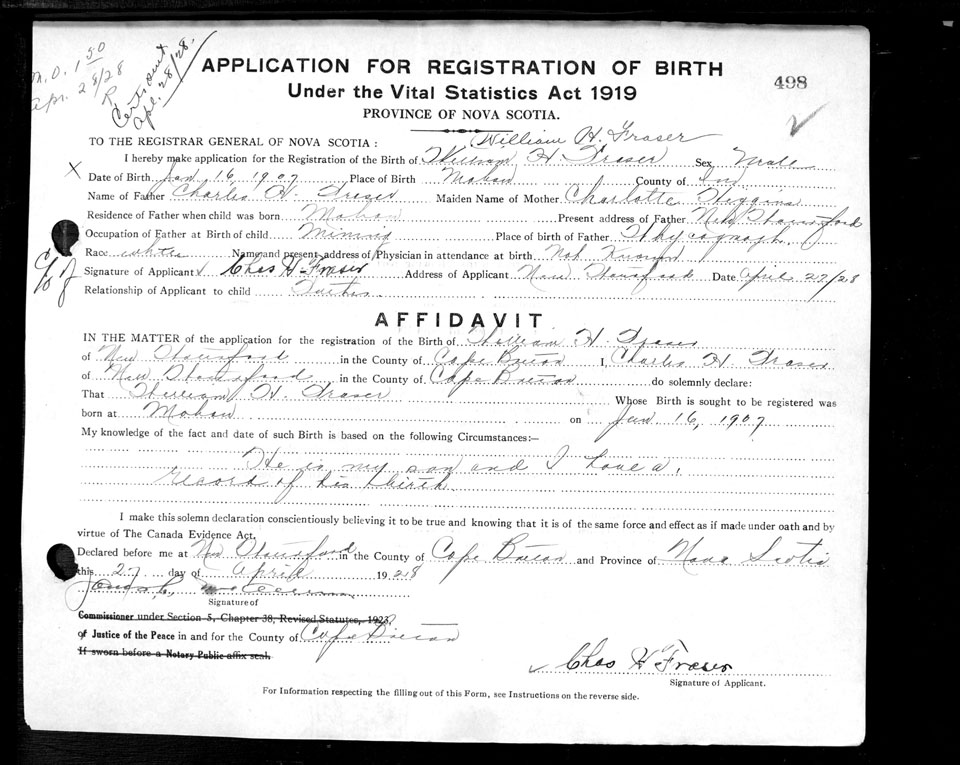 M.O. 1 50
Apr. 28/28
R
Cert. sent
Apl. 28/28.
APPLICATION FOR REGISTRATION OF BIRTH
498
Under the Vital Statistics Act 1919
PROVINCE OF NOVA SCOTIA.
William H. Fraser
TO THE REGISTRAR GENERAL OF NOVA SCOTIA:
I hereby make application for the Registration of the Birth of William H Fraser Sex Male
X Date of Birth Jan 16, 1907 Place of Birth Mabou County of Inv
Name of Father Charles H Fraser Maiden Name of Mother Charlotte Higgins
Residence of Father when child was born Mabou Present address of Father New
Occupation of Father at Birth of child Mining Place of birth of Father Whycocomagh
Race white Name and present address of Physician in attendance at birth Not Known
Signature of Applicant Chas H Fraser Address of Applicant New Date April 27/28
Relationship of Applicant to child Father
AFFIDAVIT
IN THE MATTER of the application for the registration of the Birth of William H. Fraser
of New in the County of Cape Breton I, Charles H. Fraser
of New in the County of Cape Breton do solemnly declare:
That William H. Fraser Whose Birth is sought to be registered was
born at Mabou on Jan 16, 1907
My knowledge of the fact and date of such Birth is based on the following Circumstances:—
He is my son and I have a
record of his birth
I make this solemn declaration conscientiously believing it to be true and knowing that it is of the same force and effect as if made under oath and by
virtue of The Canada Evidence Act.
Declared before me at New in the County of Cape Breton and Province of Nova Scotia
this 27 day of April 1928
Signature of
Commissioner under Section 5, Chapter 38, Revised Statutes, 1923?
of Justice of the Peace in and for the County of Cape Breton
If sworn before a Notary Public affix seal.
Chas H Fraser
Signature of Applicant.
For Information respecting the filling out of this Form, see Instructions on the reverse side.